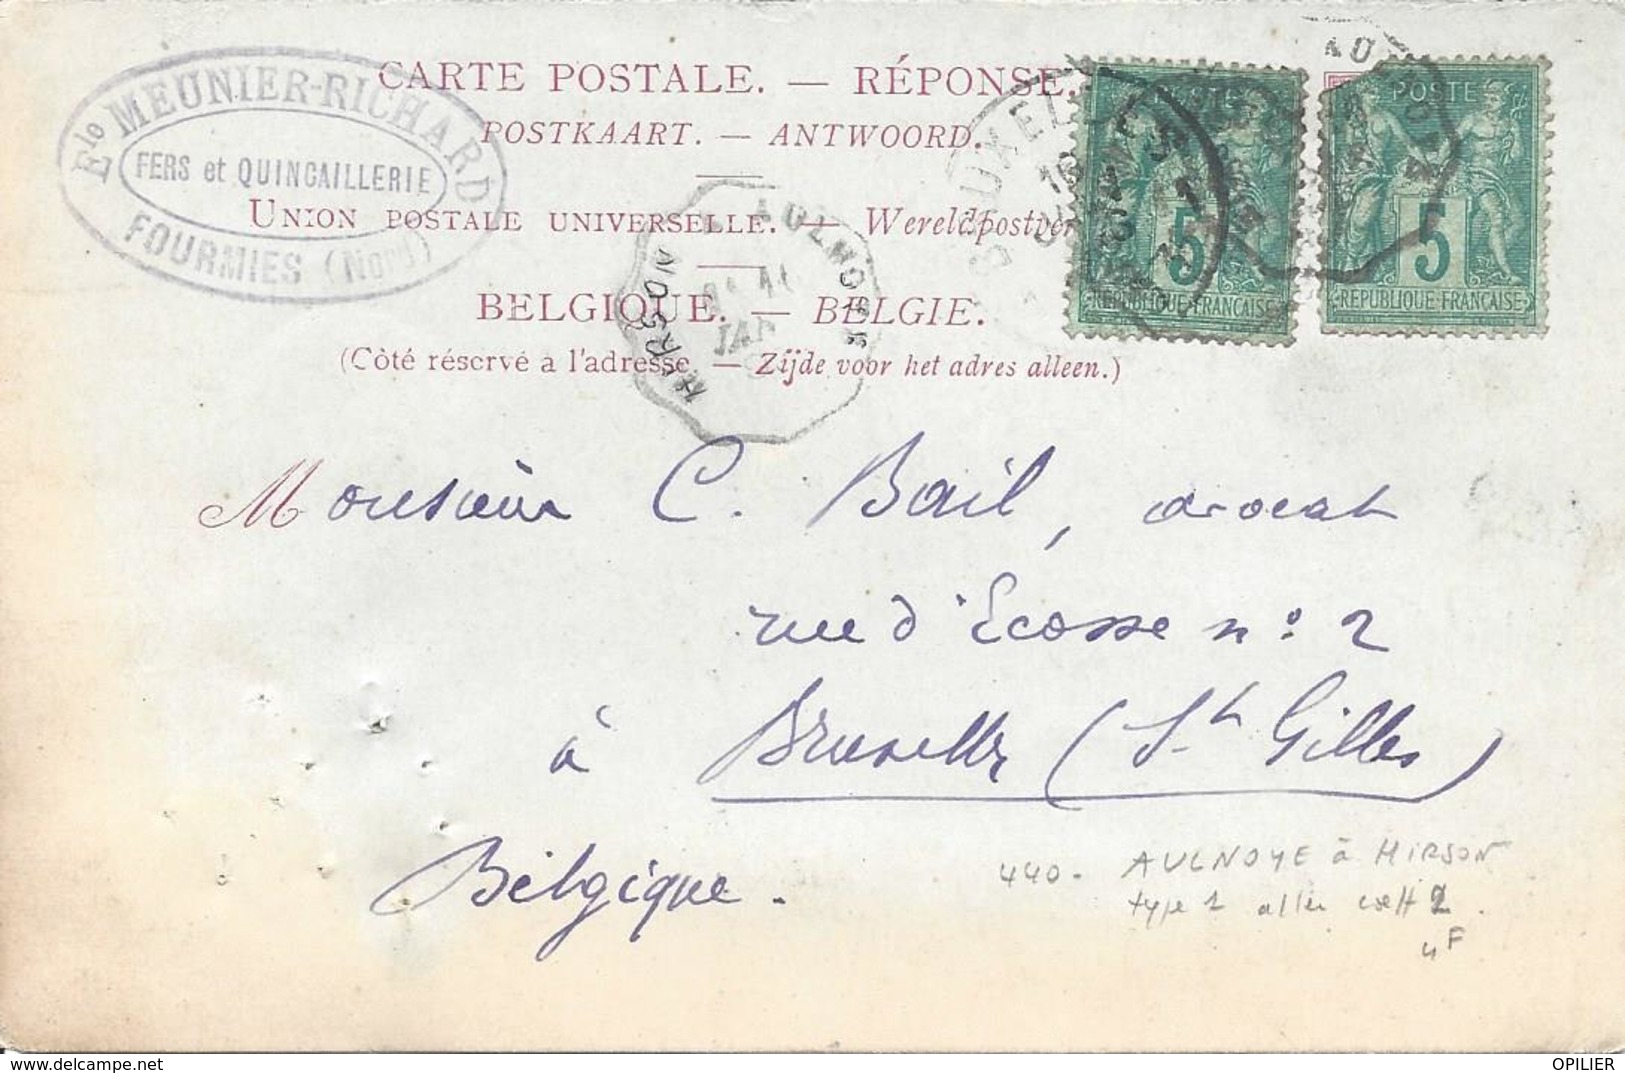 CARTE POSTALE. — RÉPONSE.
POSTKAART. — ANTWOORD.
UNION POSTALE UNIVERSELLE. — Wereldpostver
BELGIQUE. — BELGIE.
(Côté réservé à l'adresse. — Zijde voor het adres alleen.)
Eto MEUNIER-RICHARD
FERS et QUINCAILLERIE
FOURMIES (Nord)
POSTE
5
REPUBLIQUE FRANÇAISE
POSTE
5
REPUBLIQUE FRANÇAISE
HIRSON
JAN
Monsieur C. Bail, avocat
rue d'Ecosse no: 2
à Bruxelles (St Gilles)
Belgique.
440. AULNOYE à HIRSON
type 1 aller coeff 2.
4F
delcampe.net
OPILIER